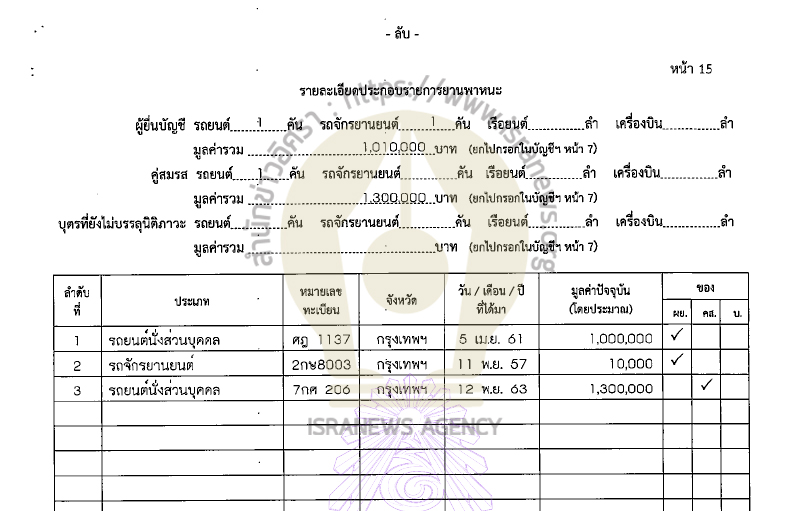 - ลับ -
หน้า 15
รายละเอียดประกอบรายการยานพาหนะ
ผู้ยื่นบัญชี รถยนต์ 1 คัน รถจักรยานยนต์ 1 คัน เรือยนต์ ลำ เครื่องบิน ลำ
มูลค่ารวม 1,010,000 บาท (ยกไปกรอกในบัญชีฯ หน้า 7)
คู่สมรส รถยนต์ 1 คัน รถจักรยานยนต์ คัน เรือยนต์ ลำ เครื่องบิน ลำ
มูลค่ารวม 1,300,000 บาท (ยกไปกรอกในบัญชีฯ หน้า 7)
บุตรที่ยังไม่บรรลุนิติภาวะ รถยนต์ คัน รถจักรยานยนต์ คัน เรือยนต์ ลำ เครื่องบิน ลำ
มูลค่ารวม บาท (ยกไปกรอกในบัญชีฯ หน้า 7)
ลำดับที่ ประเภท หมายเลขทะเบียน จังหวัด วัน / เดือน / ปี ที่ได้มา มูลค่าปัจจุบัน (โดยประมาณ) ของ
ผย. คส. บ.
1 รถยนต์นั่งส่วนบุคคล ศฎ 1137 กรุงเทพฯ 5 เม.ย. 61 1,000,000 ✓
2 รถจักรยานยนต์ 2กษ8003 กรุงเทพฯ 11 พ.ย. 57 10,000 ✓
3 รถยนต์นั่งส่วนบุคคล 7กศ 206 กรุงเทพฯ 12 พ.ย. 63 1,300,000 ✓
สำนักข่าวอิศรา : https://www.isranews.org
ISRANEWS AGENCY